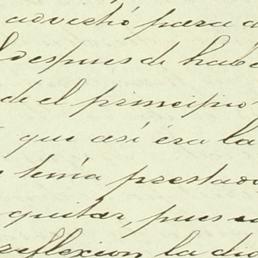 advirtió para
despues de habe
de el principio
que así era la
tenía prestado
quitar, pues
reflexion la dió